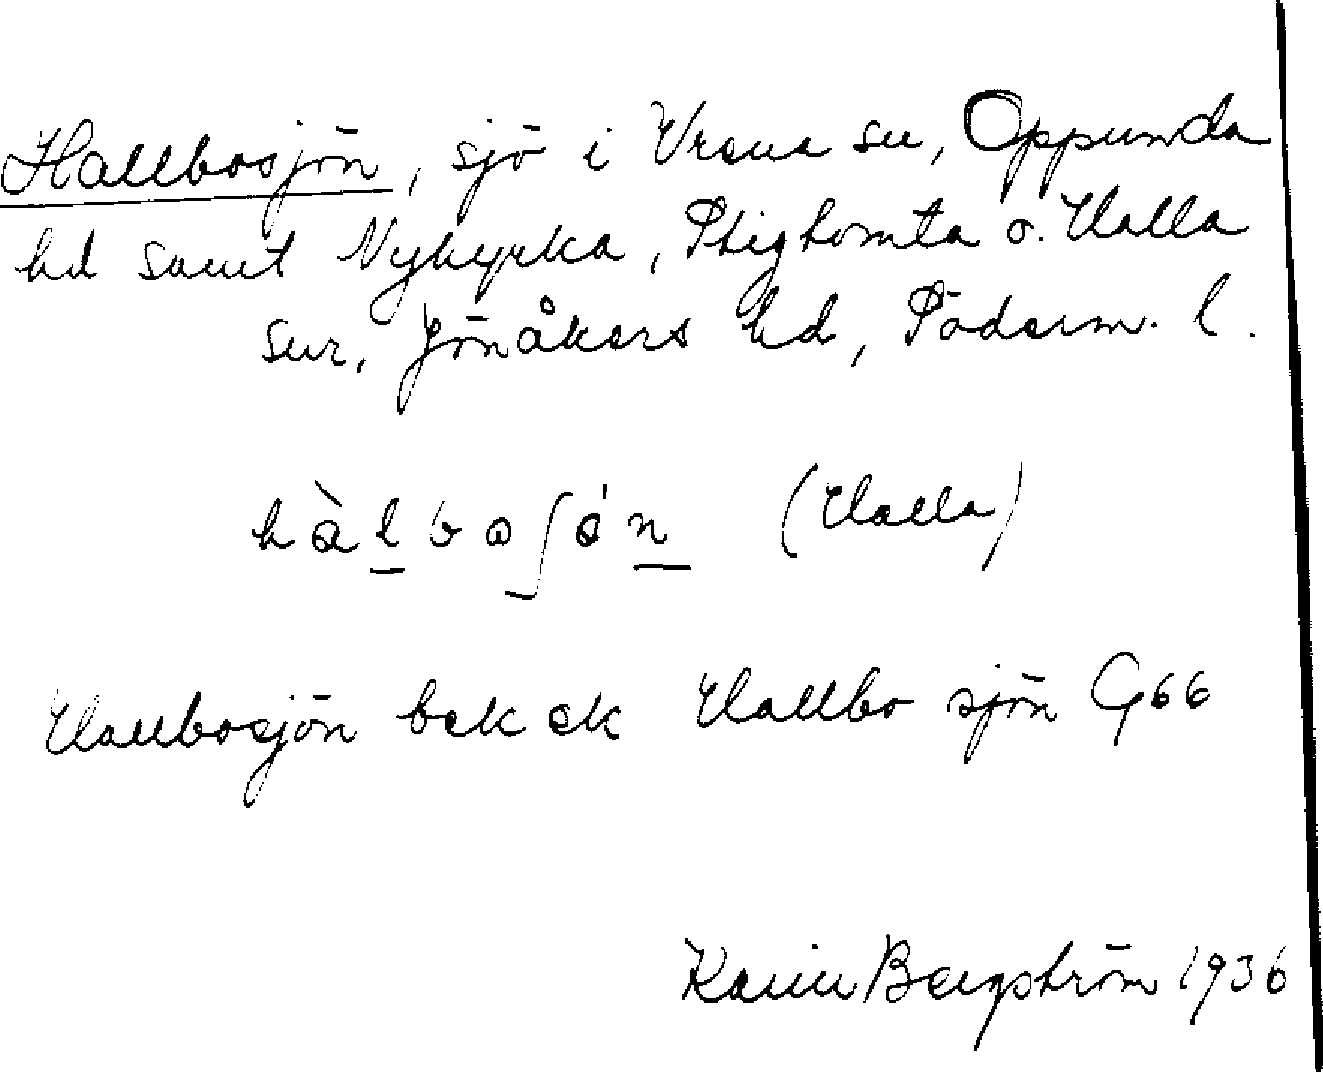 Hallbosjön, sjö i Vrena sn, Oppunda
hd samt Nykyrka, Stigtomta o. Halla
snr, Jönåkers hd, Söderm. l.
hàlboʃȯn (Halla)
Hallbosjön bek ek Hallbo sjön G66
Karin Bergström 1936